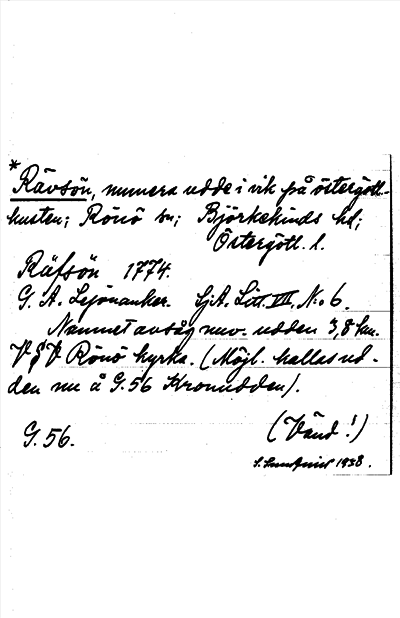 * Rävsön, numera udde i vik på östergöt-
kusten; Rönö sn; Björkekinds hd;
Östergötl. l.
Räfsön 1774.
G. A. Lejonanker. Sj.A. Litt. VII, No 6.
Namnet avsåg nuv. udden 3,8 km.
V§V Rönö kyrka. (Möjl. kallas ud-
den nu å G.56 Kronudden).
G. 56. (Vänd!)
1938.